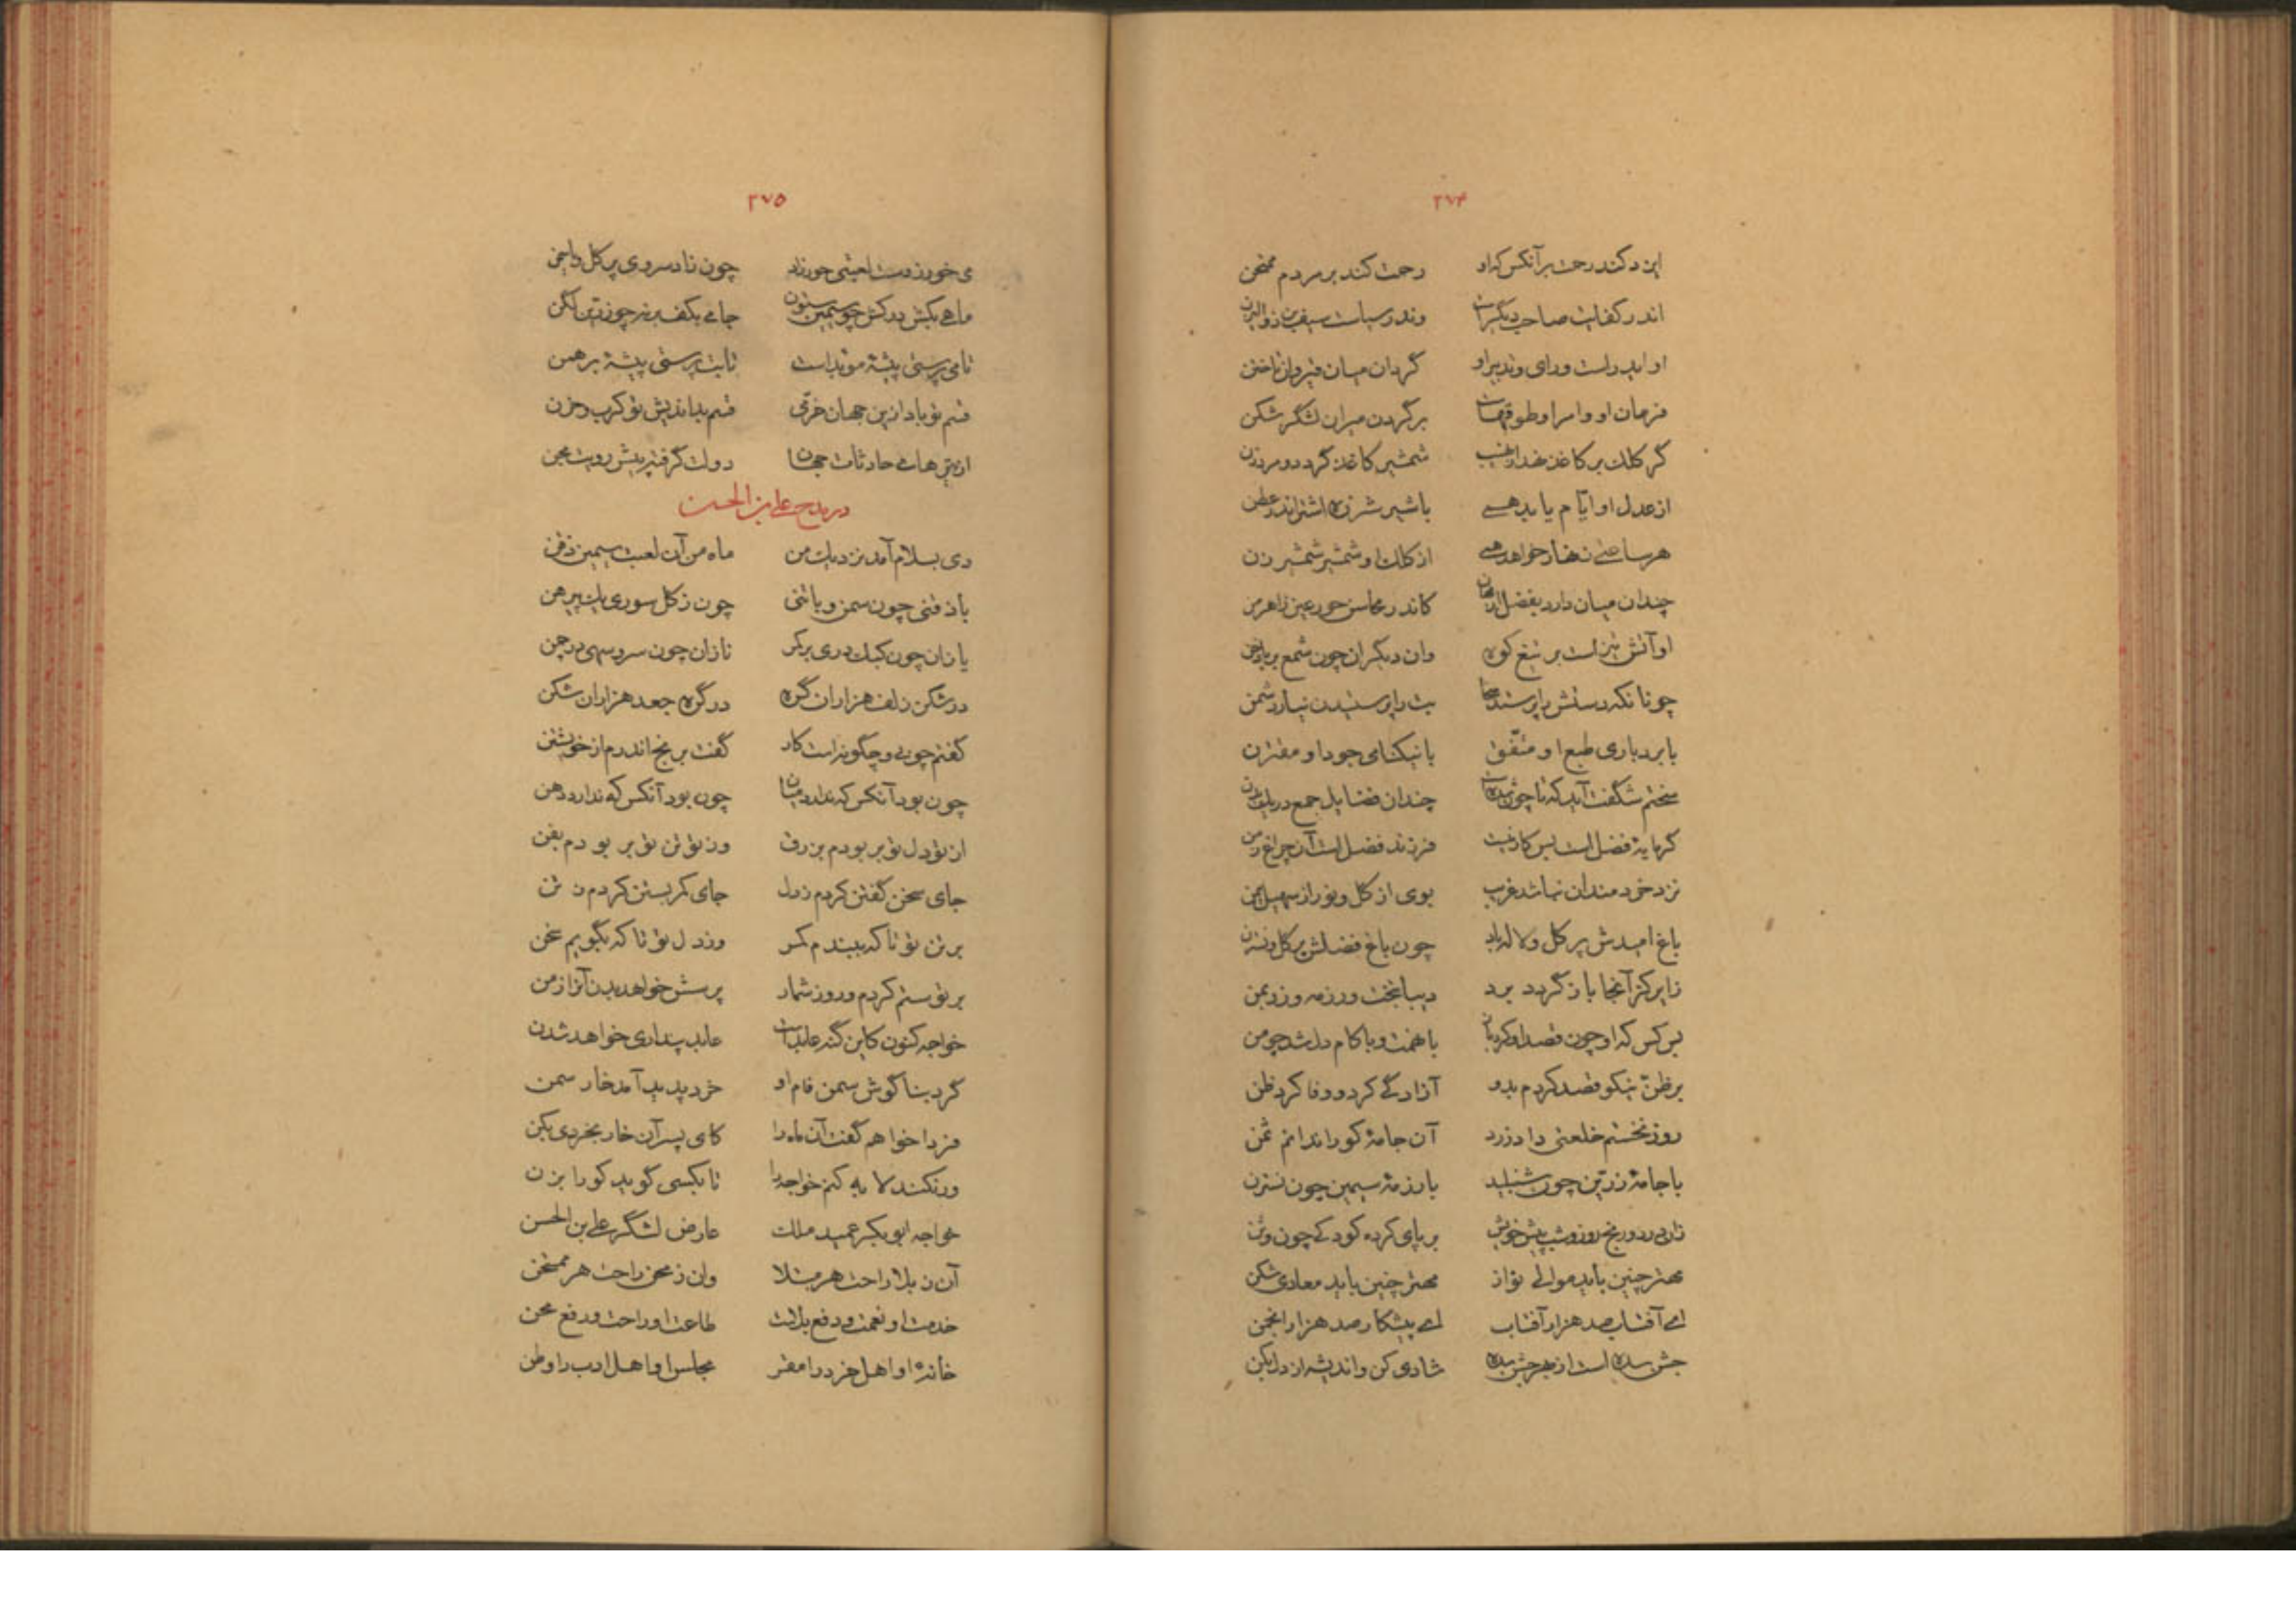 ۲۷۴
ایزد کند رحمت بر آنکس که او رحمت کند بر مردم ممتحن
اندر کفایت صاحب دیگرست وندر سیاست سیف بن ذوالیزن
او ایدر است و رای و تدبیر او گردان میان قیروان تا ختن
فرمان او و امر او طوقهاست بر گردن میران لشگر شکن
گر کلک بر کاغذ نهد از نهیب شمشیر کاغذ گردد و مرد زن
از عدل او آیّام یابد همی با شیر شرزه اشتر اندر عطن
هر ساعتی زنهار خواهد همی از کلک او شمشیر شمشیر زن
چندان میان دارد بفضل از مهان کاندر محاسن حور عین ز اهرمن
او آتش تیز است بر تیغ کوه وان دیگران چون شمع بر بادخن
چونانکه دستش را پرستد سخا بت را پرستیدن نیارد شمن
با بردباری طبع او متّفق با نیکنامی جود او مقترن
سختم شگفت آید که تا چون شده است چندان فضایل جمع در یک بدن
گر مایهٔ فضل است بس کار نیست فرزند فضل است آن چراغ زمن
نزد خردمندان نباشد غریب بوی از گل و نور از سهیل یمن
باغ امیدش پر گل و لاله باد چون باغ فضلش پر گل و نسترن
زایر کز آنجا باز گردد برد دیبا بتخت و رزمه و زر بمن
بس کس که او چون قصد او کرد باز با نعمت و با کام دل شد چو من
بر ظنّ نیکو قصد کردم بدو آزادگی کرد و وفا کرد ظن
روز نخستم خلعتی داد زرد آن جامهٔ کو را ندانم ثمن
با جامهٔ زرّین چون شنبلید با رزمهٔ سیمین چون نسترن
زان بی درد و رنج روز و شب پیش خویش بر پای کرده کودکی چون وثن
مهتر چنین باید موالی نواز مهتر چنین باید معادی شکن
ای آفتاب صد هزار آفتاب ای پیشکار صد هزار انجمن
جشن سده است از بهر جشن سده شادی کن و اندیشه از دل بکن
۲۷۵
می خور ز دست لعبتی حور زاد چون زاد سروی پر گل و یاسمن
ماهی بکش درکش چو سیمین ستون جامی بکف برنه چو زرّین لگن
تا می پرستی پیشهٔ موبد است تا بت پرستی پیشهٔ برهمن
قسم تو باد از این جهان خرّمی قسم بداندیش تو کرب و حزن
از تیرهای حادثات جهان دولت گرفته پیش رویت مجن
در مدح علی بن الحسن
دی بسلام آمد نزدیک من ماه من آن لعبت سیمین ذقن
با ذقنی چون سمن و با تنی چون ز گل سوری یک پیرهن
یازان چون کبک دری بر کمر نازان چون سرو سهی در چمن
در شکن زلف هزاران گره در گره جعد هزاران شکن
گفتم چونی و چگونه است کار گفت برنج اندرم از خویشتن
چون بود آنکس که ندارد میان چون بود آنکس که ندارد دهن
از تو دل تو بربودم بزرق وز تو تن تو بربودم بفن
جای سخن گفتن کردم ز دل جای کمر بستن کردم ز تن
بر تن تو تا که ببندم کمر وز دل تو تا که بگویم سخن
بر تو ستم کردم و روز شمار پرسش خواهد بدن آنرا ز من
خواجه کنون کاین گنه عابد است عابد پنداری خواهد شدن
گرد بناگوش سمن فام او خرد پدید آمد خار سمن
فردا خواهم گفت آن ماه را کای پسر آن خار بخردی بکن
ور نکند لابه کنم خواجه را تا بکسی گوید کو را بزن
خواجه ابوبکر عمید ملک عارض لشگر علی بن الحسن
آن ز بلا راحت هر مبتلا وان ز محن راحت هر ممتحن
خدمت او نعمت و دفع بلاست طاعت او راحت و دفع محن
خانهٔ او اهل خرد را مقر مجلس او اهل ادب را وطن